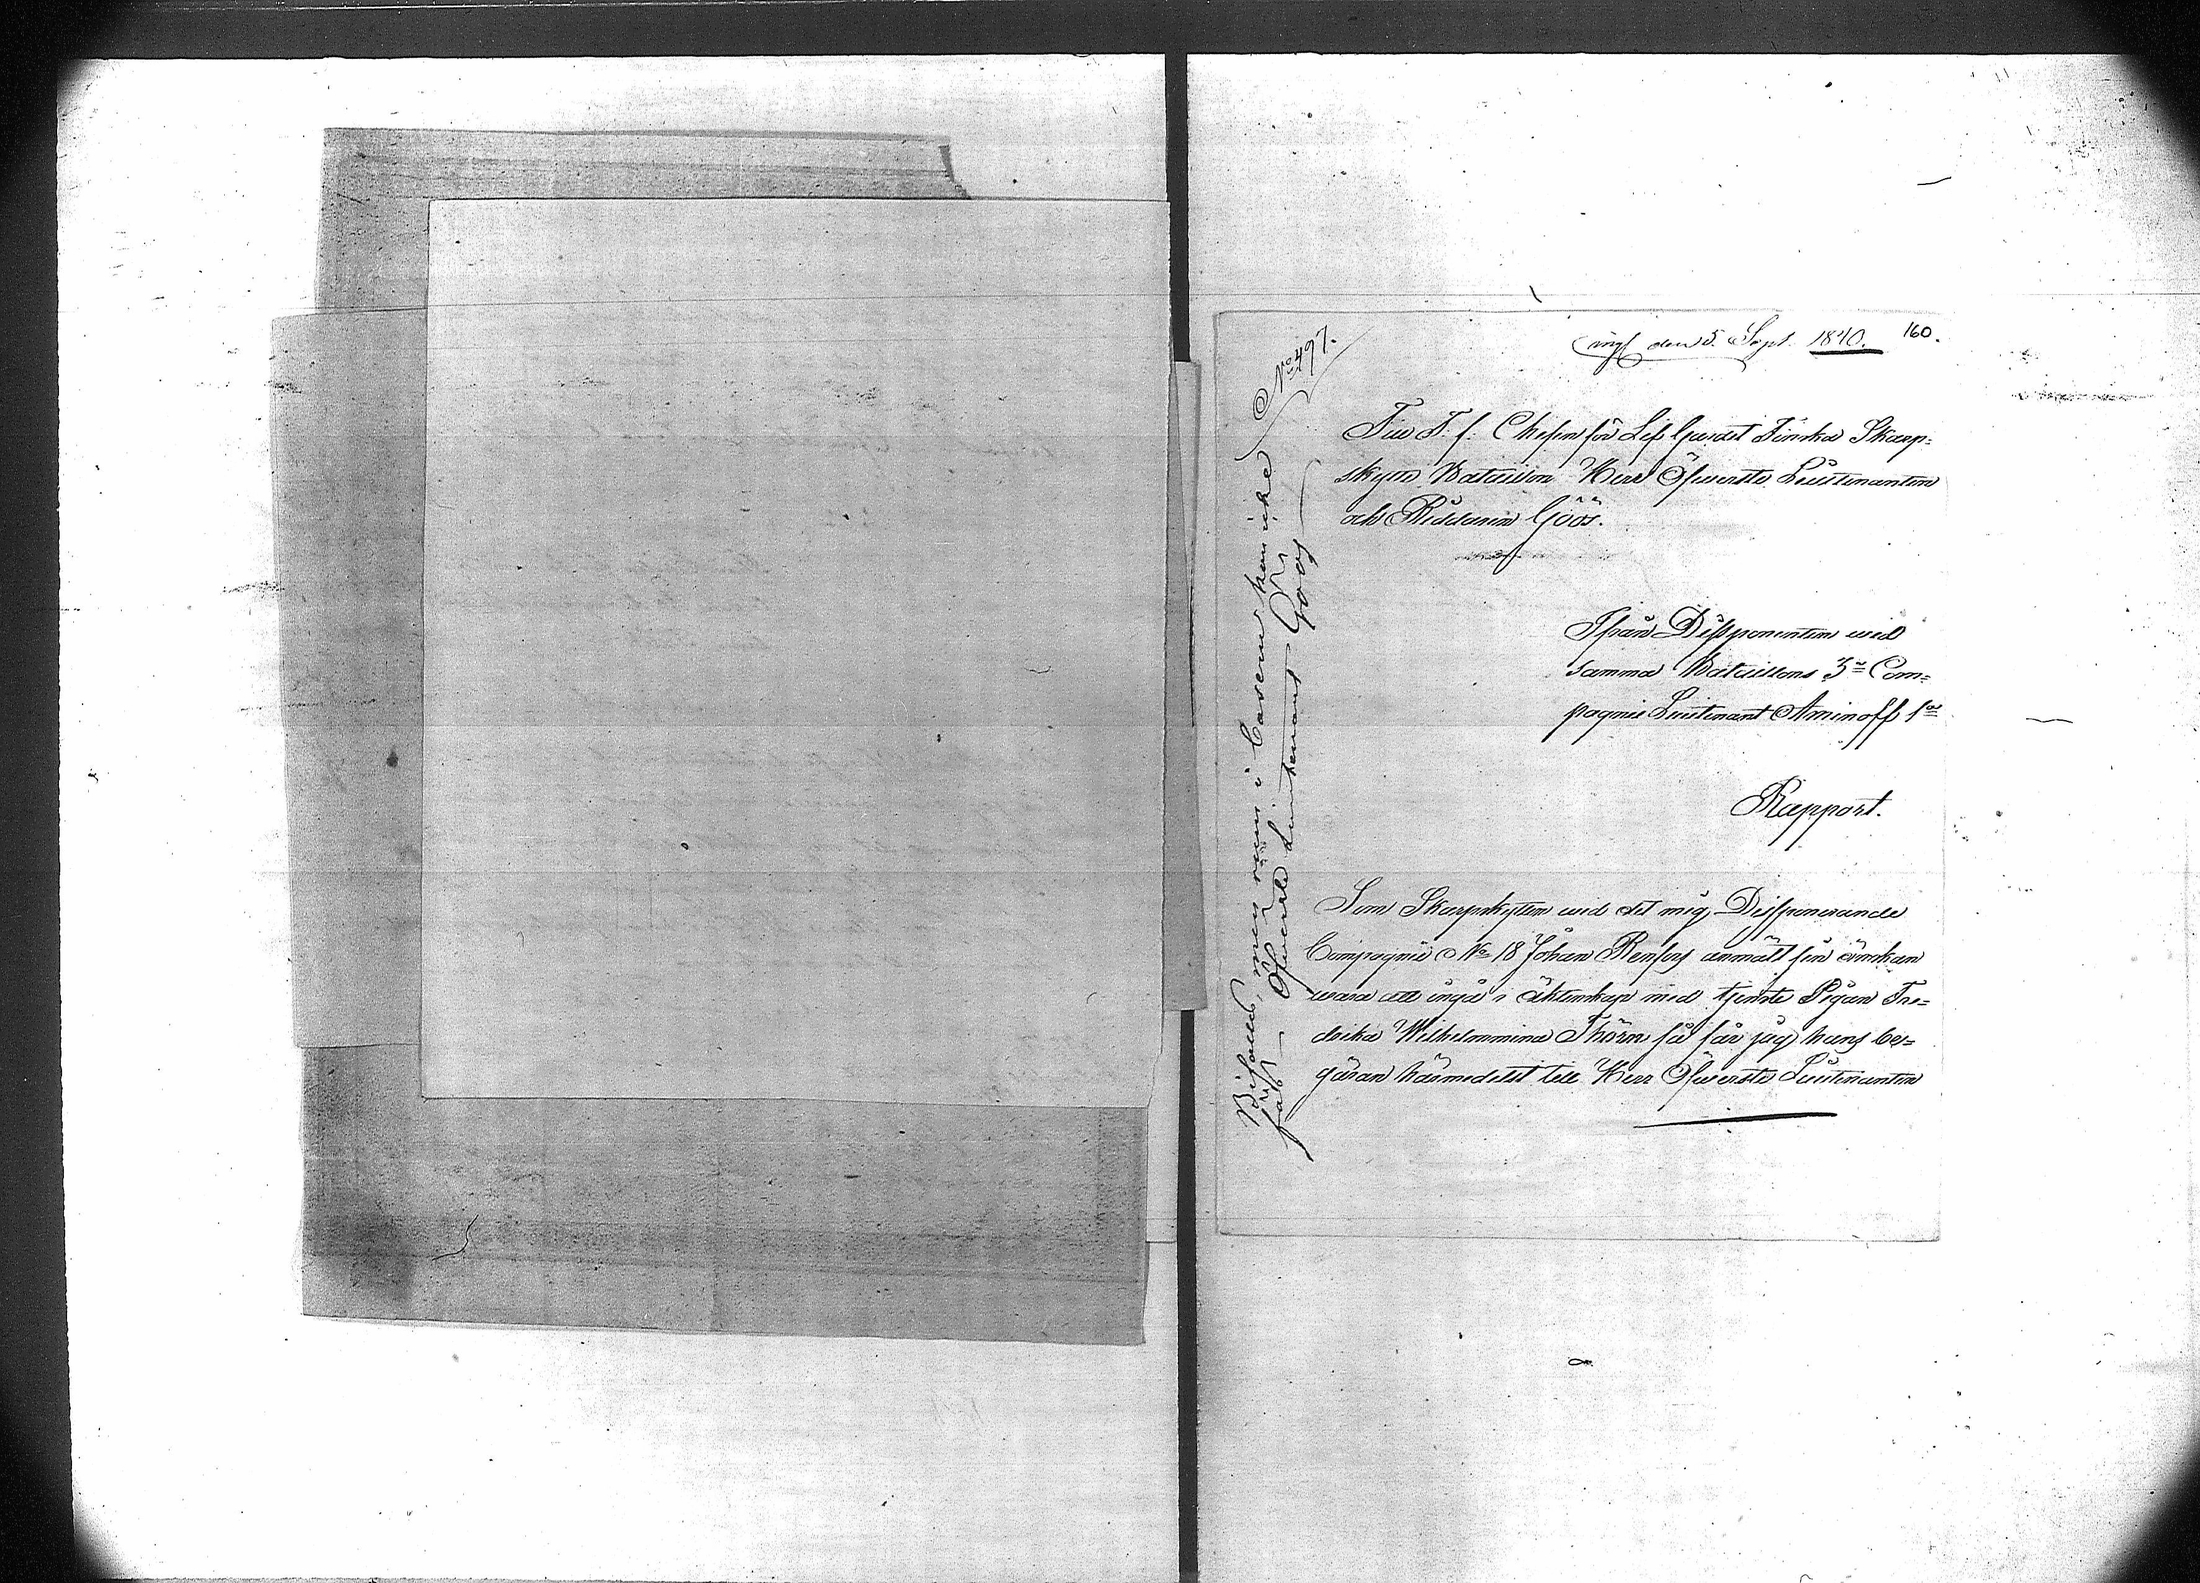 ingf den 5. Sept. 1840. 160.
No 497.
Till T. f. Chefen för Lif Gardet Finska Skarp-
skytte Bataillon Herr Öfwerste Lieutenanten
och Riddaren Göös.
Ifrån Dissponenten wid
samma Bataillons 3e Com-
pagnie Lieutenant Aminoff 1a
Rapport.
Som Skarpskytten wid det mig Dissponerande
Compagnie No 18 Johan Renfors anmält sin önskan
wara att ingå i äktenskap med tjenste Pigan Fre-
drika Wilhelmmina Thörn så får jag hans be-
gäran härmedelst till Herr Öfwerste Lieutenanten
Bifalles, men rum i Casern kan icke
fås Öfwerste Lieutenant Göös